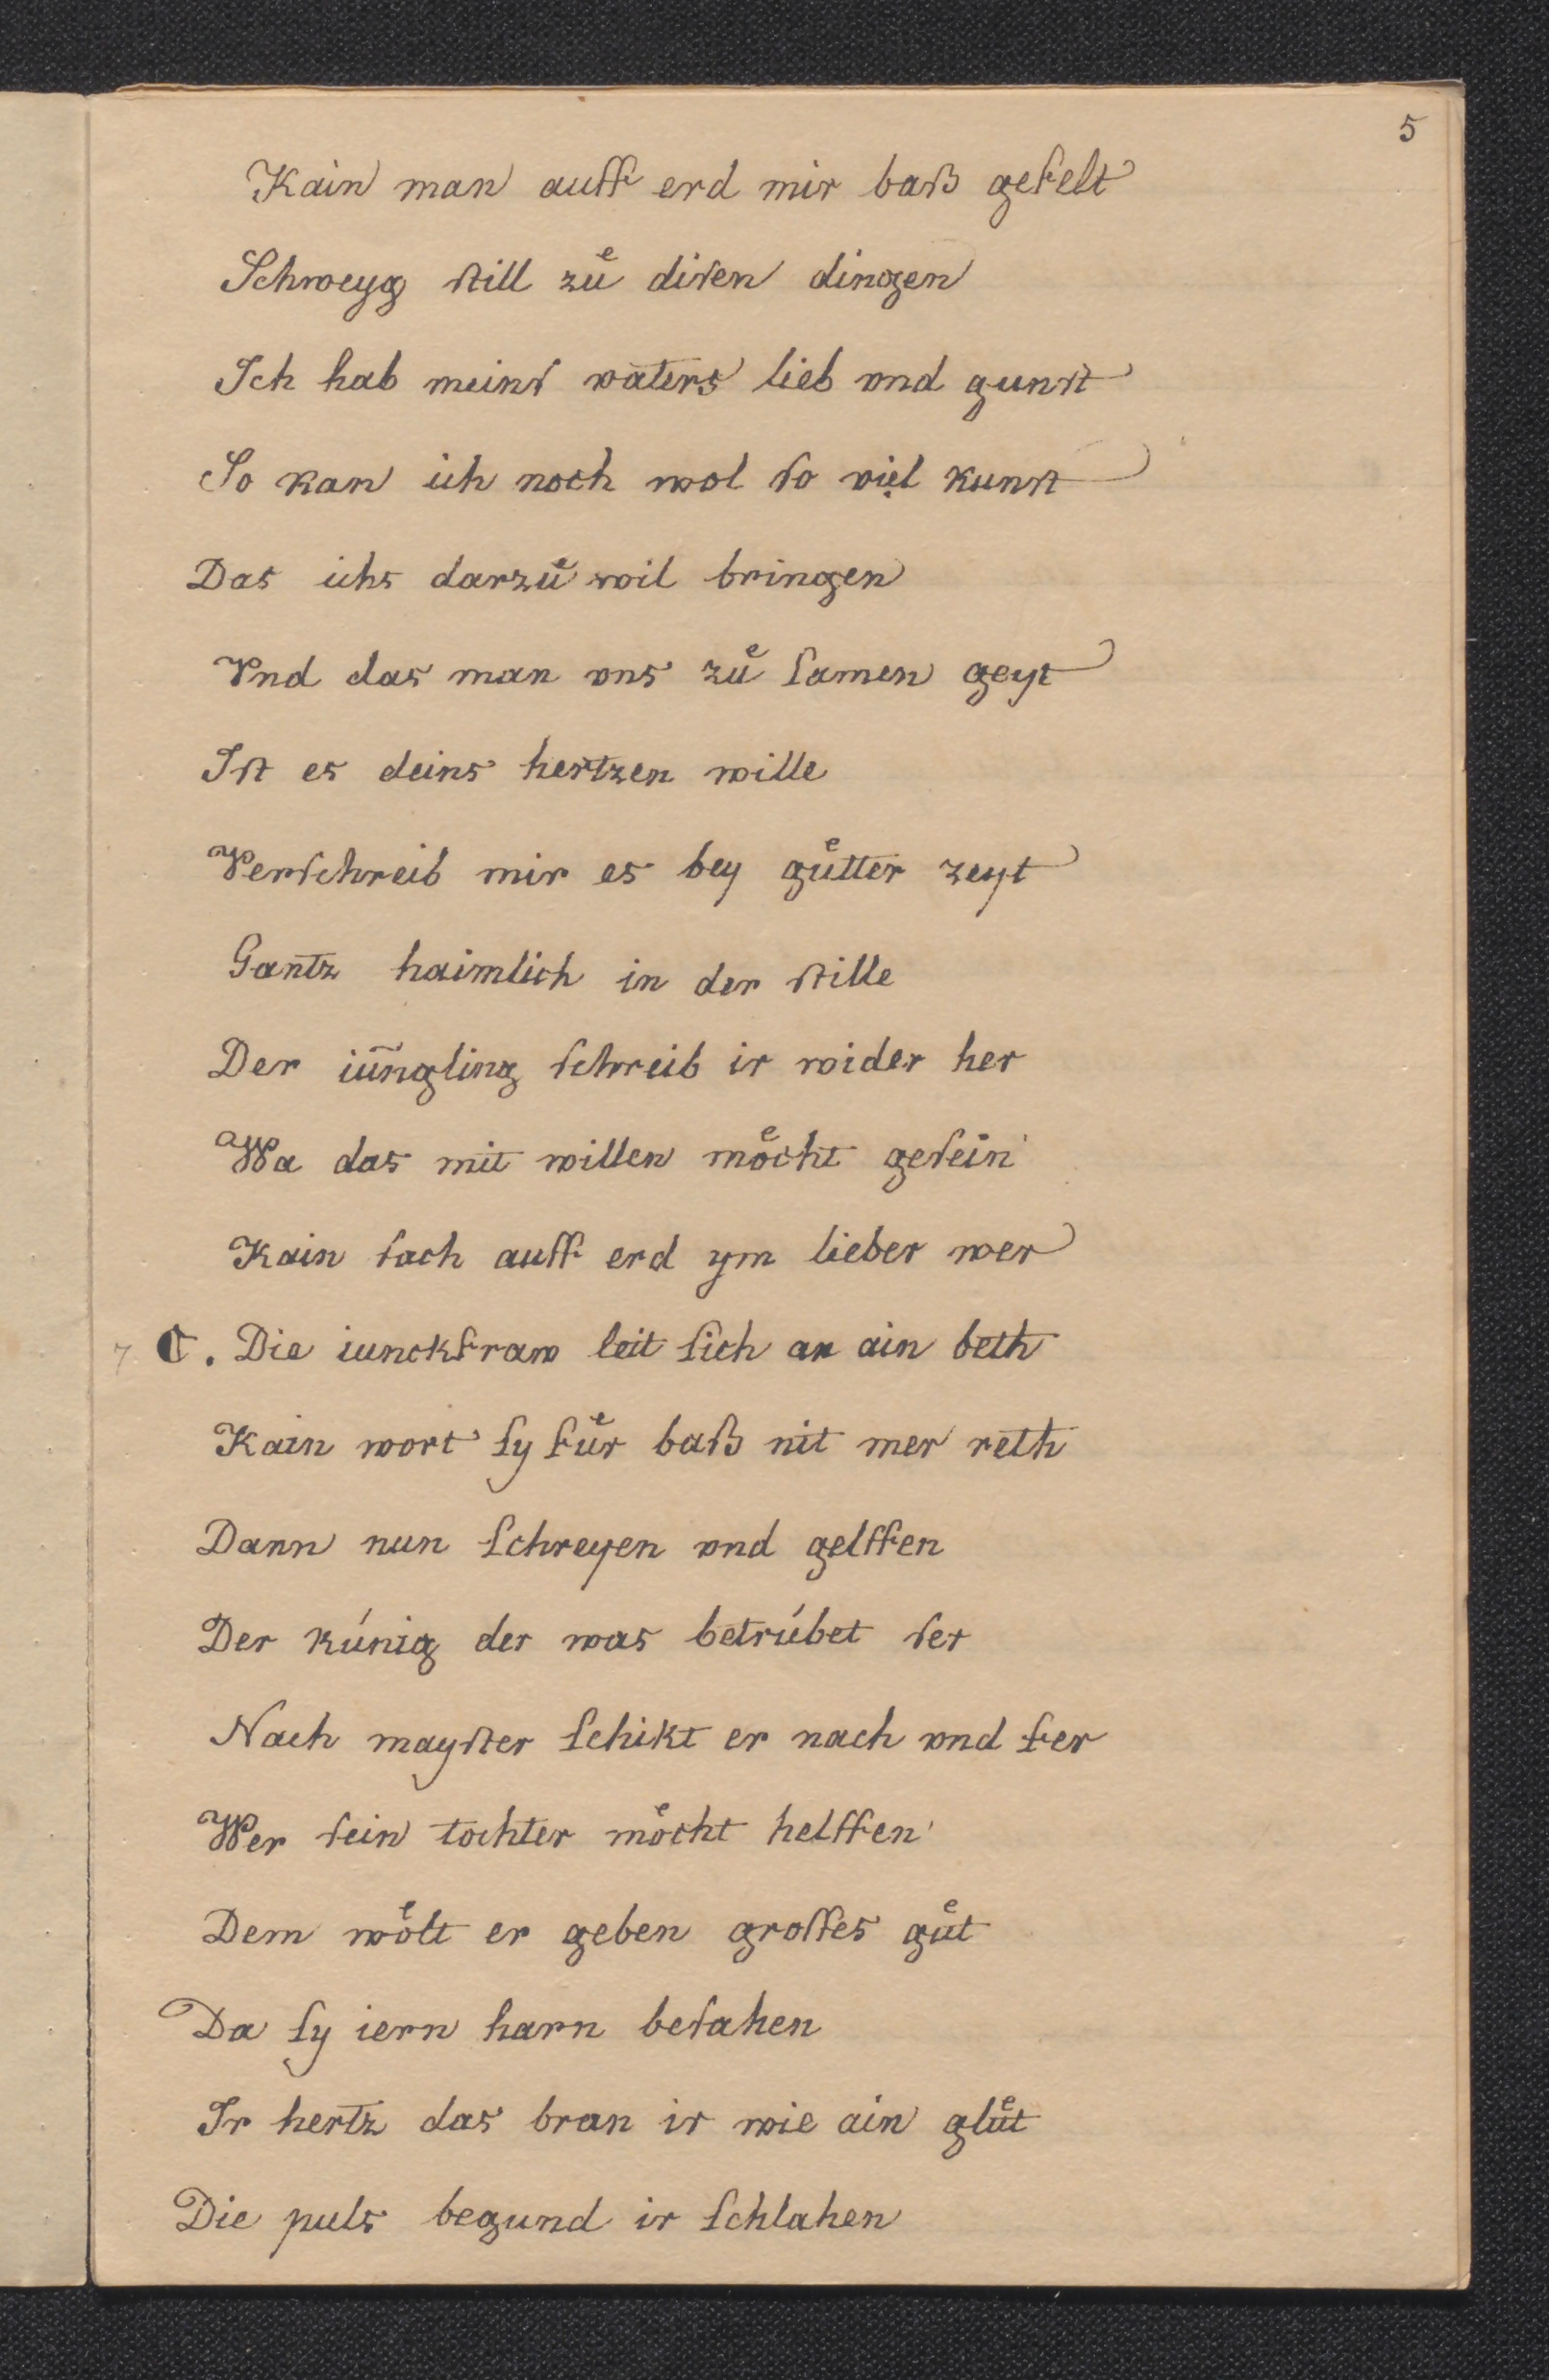 5
Kain man auff erd mir baß gefelt
Schweyg ſtill zuͤ diſen dingen
Ich hab meinſ vaters lieb vnd gunſt
So kan ich noch wol ſo viel kunſt
Das ichs darzuͤ wil bringen
Vnd das man vns zuͤ ſamen geyt
Iſt es deins hertzen wille
Verſchreib mir es bey guͤtter zeyt
Gantz haimlich in der ſtille
Der iüngling ſchreib ir wider her
Wa das mit willen moͤcht geſein
Kain ſach auff erd ym lieber wer
7 C. Die iunckfraw leit ſich an ain beth
Kain wort ſy fuͤr baß nit mer reth
Dann nun ſchreyen vnd gelffen
Der kúnig der was betrúbet ſer
Nach mayſter ſchikt er nach vnd fer
Wer ſein tochter moͤcht helffen
Dem woͤlt er geben groſſes guͤt
Da ſy iern harn beſahen
Ir hertz das bran ir wie ain gluͤt
Die puls begund ir ſchlahen